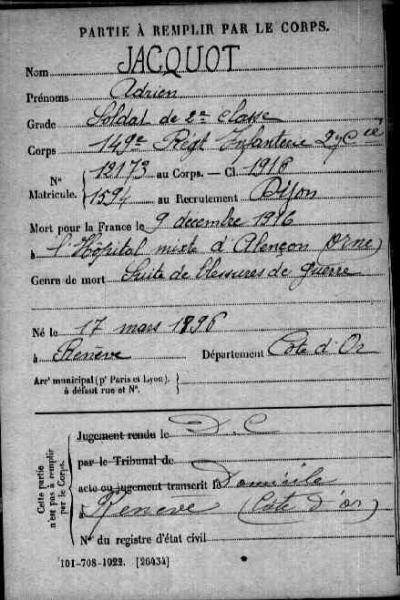 PARTIE À REMPLIR PAR LE CORPS.
Nom JACQUOT
Prénoms Adrien
Grade Soldat de 2me classe
Corps 149e Régt Infanterie 27Cie
N° 12173 au Corps. — Cl. 1916
Matricule. 1594 au Recrutement Dijon
Mort pour la France le 9 décembre 1916
à l'Hôpital mixte d'Alençon (Orne)
Genre de mort Suite de blessures de guerre
Né le 17 mars 1896
à Renève Département Côte d'Or
Arr' municipal (p' Paris et Lyon),
à défaut rue et N°.
Cette partie n'est pas à remplir par le Corps.
Jugement rendu le D.C
par le Tribunal de
acte ou jugement transcrit le Domicile
à Renève (Côte d'or)
N° du registre d'état civil
101-708-1922. [26434]